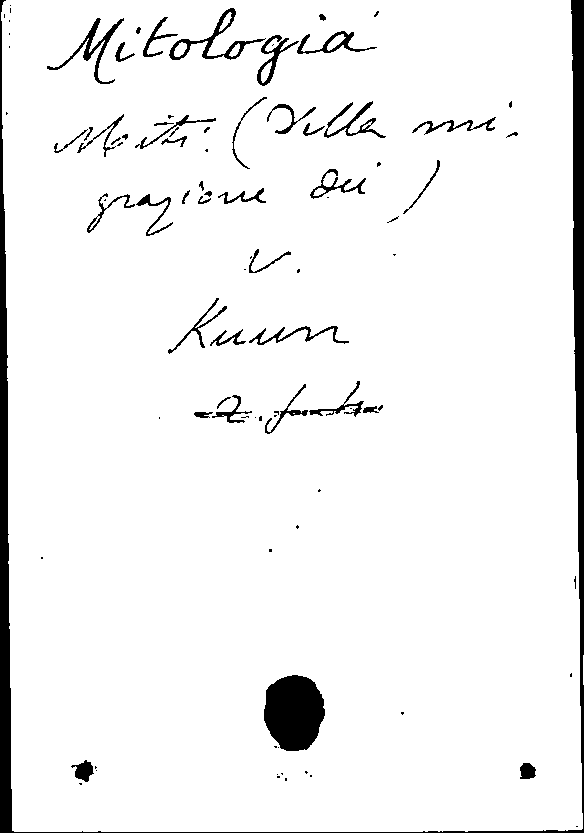 Mitologia
Miti. (Della mi-
grazione dei)
V.
Kuun